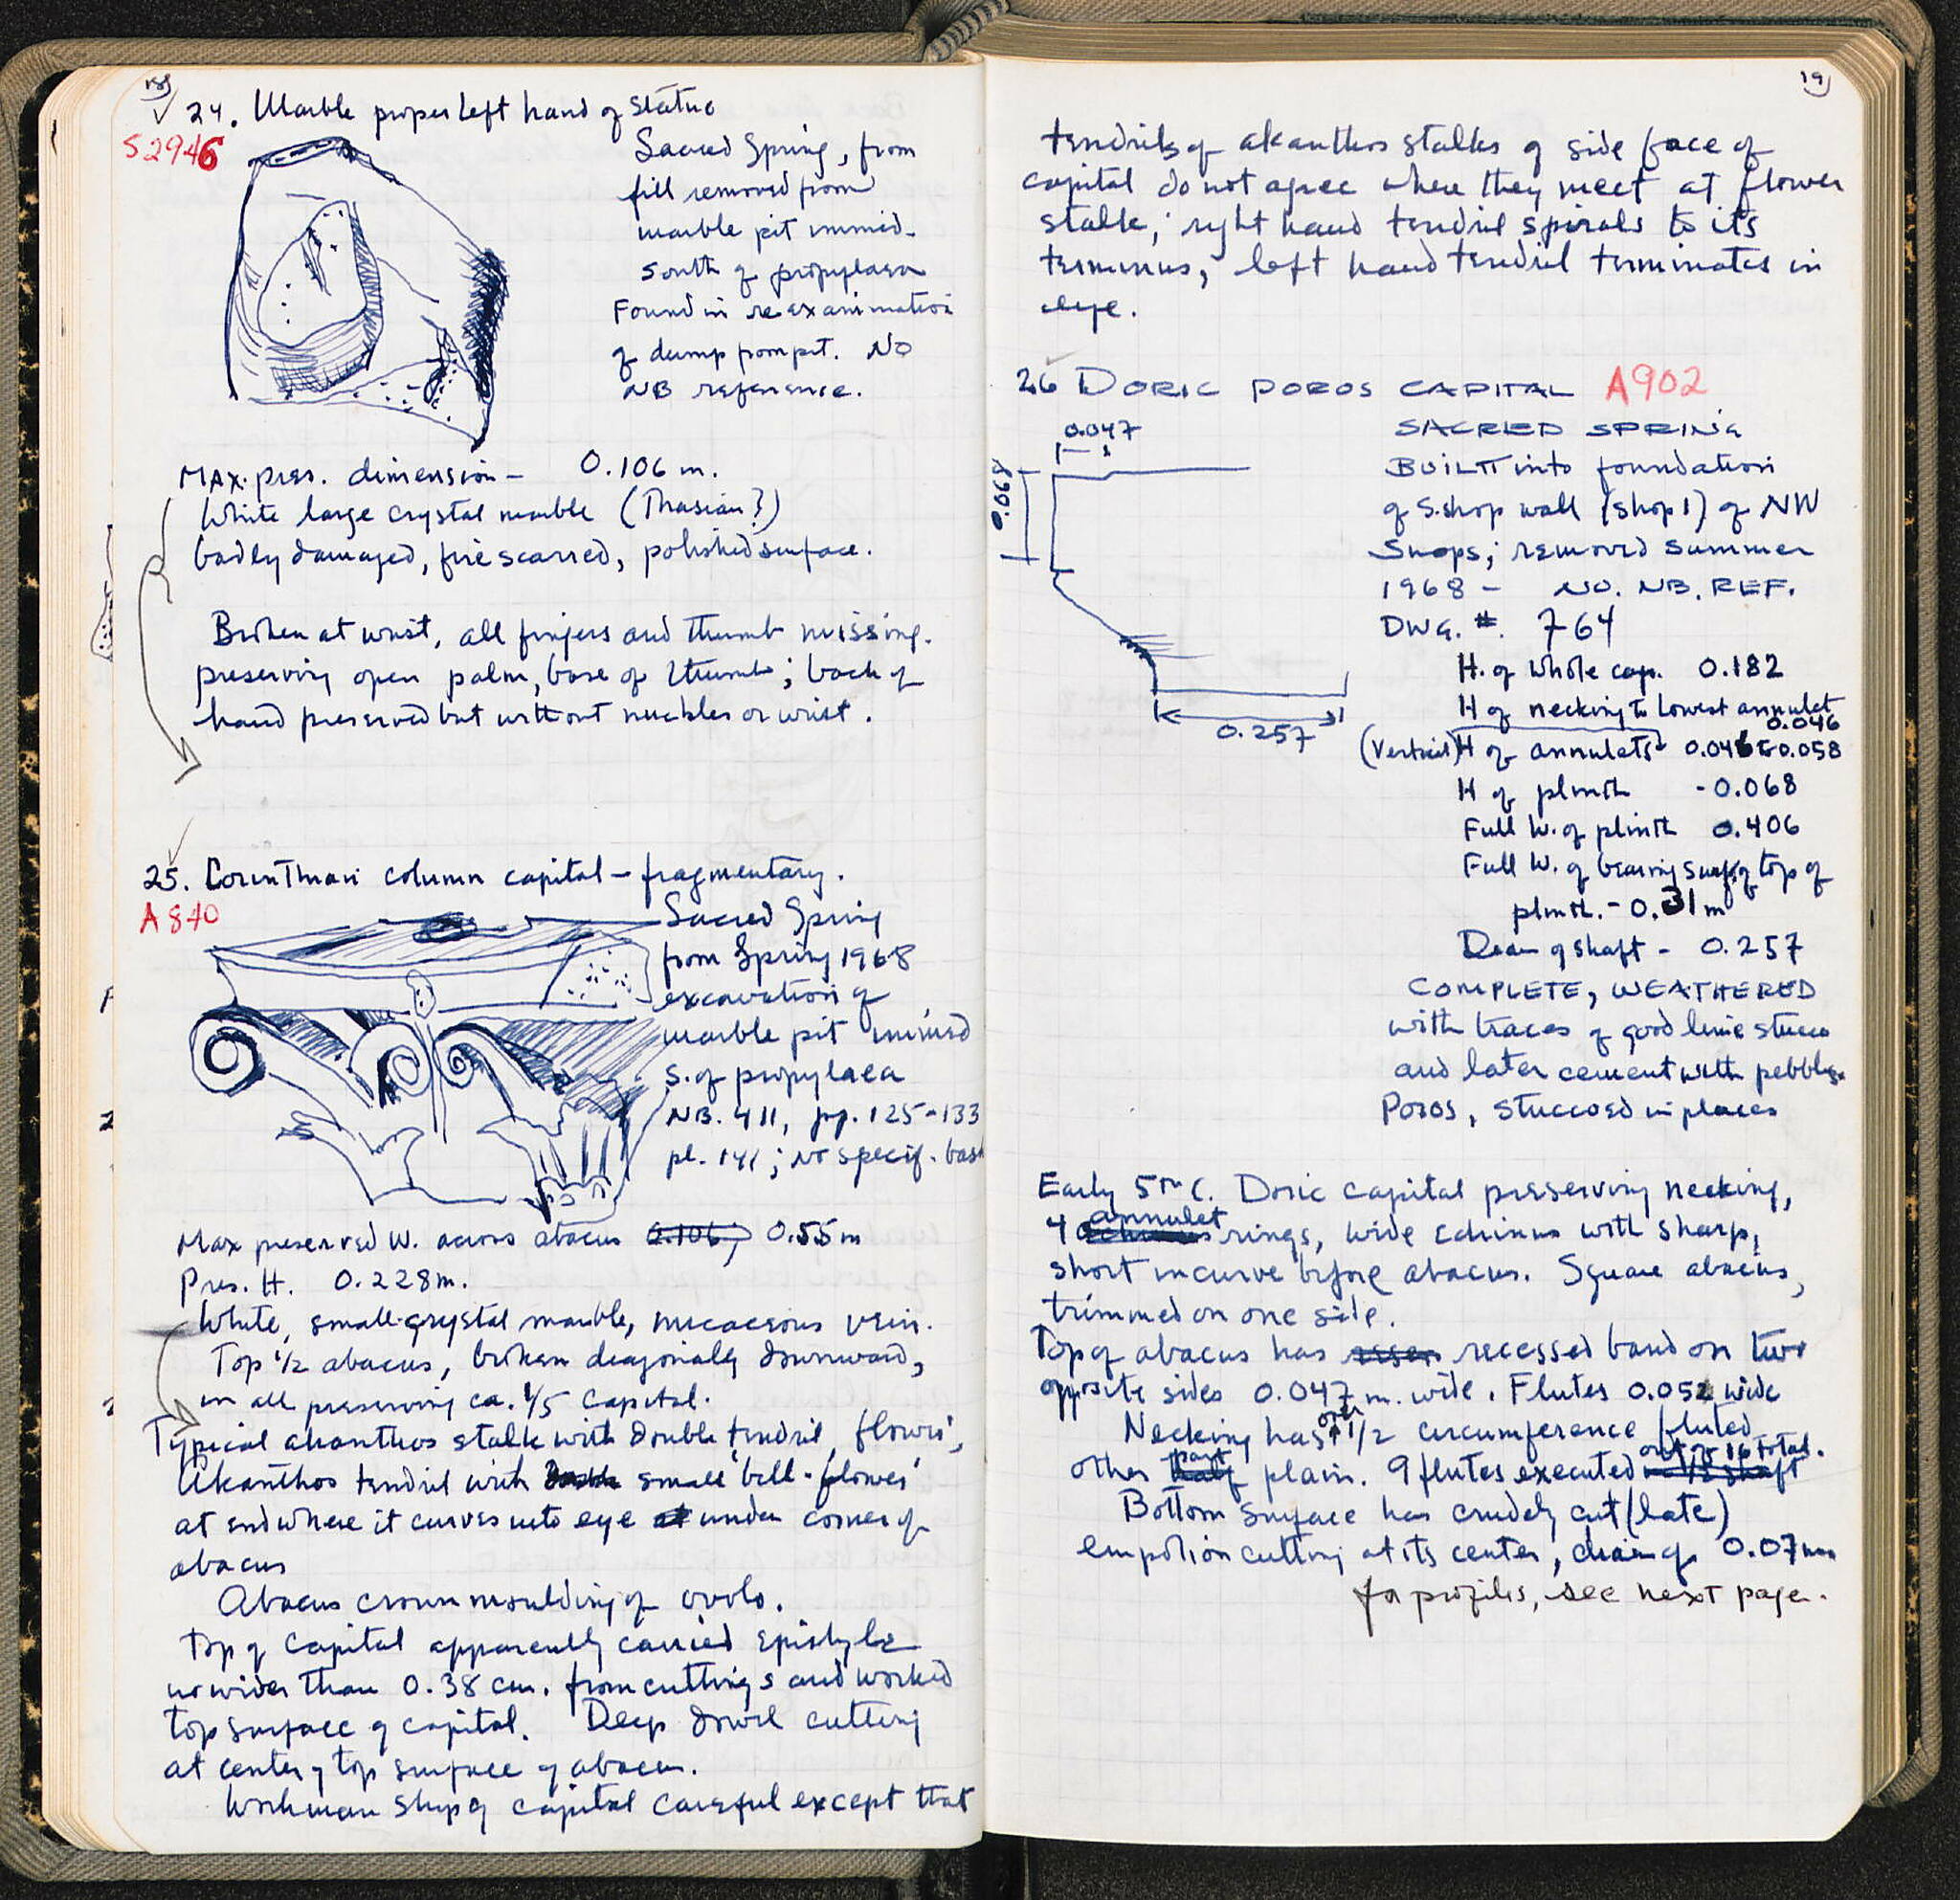 18
24. Marble proper left hand of statue
S2946
Sacred Spring, from
fill removed from
marble pit immed.
south of propylaea
Found in reexamination
of dump from pit. No
NB reference.
Max. pres. dimension – 0.106 m.
White large crystal marble (Thasian?)
badly damaged, fire scarred, polished surface.
Broken at wrist, all fingers and thumb missing.
preserving open palm, base of thumb; back of
hand preserved but without nuckles or wrist.
25. Corinthian column capital – fragmentary.
A 840
Sacred Spring
from Spring 1968
excavation of
marble pit immed
S. of propylaea
NB. 411, pp. 125-133
pl. 141; no specif. bask
Max preserved W. across abacus 0.106, 0.55 m
Pres. H. 0.228 m.
White, small-crystal marble, micaceous vein.
Top 1/2 abacus, broken diagonally downward,
in all preserving ca. 1/5 capital.
Typical akanthos stalk with double tendril, 'flower',
Akanthos tendril with small 'bell-flower'
at end where it curves into eye at under corner of
abacus
Abacus crown moulding of ovolo.
Top of capital apparently carried epistyle
no wider than 0.38 cm. from cuttings and worked
top surface of capital. Deep dowel cutting
at center of top surface of abacus.
Workmanship of capital careful except that
19
tendrils of akanthos stalks of side face of
capital do not agree where they meet at flower
stalk; right hand tendril spirals to its
terminus; left hand tendril terminates in
eye.
26 DORIC POROS CAPITAL A902
0.047
0.068
0.257
SACRED SPRING
BUILT into foundation
of S. shop wall (shop 1) of NW
Shops; removed summer
1968 – NO. NB. REF.
DWG. #. 764
H. of whole cap. 0.182
H of necking to lowest annulet
0.046
(Vertical) H of annulets 0.046 to 0.058
H of plinth - 0.068
Full W. of plinth 0.406
Full W. of bearing surf. of top of
plinth. - 0.31 m
Diam of shaft - 0.257
COMPLETE, WEATHERED
with traces of good lime stucco
and later cement with pebbles.
Poros, stuccoed in places
Early 5th C. Doric capital preserving necking,
4 annulet rings, wide echinus with sharp,
short incurve before abacus. Square abacus,
trimmed on one side.
Top of abacus has recessed band on two
opposite sides 0.047 m. wide. Flutes 0.052 wide
Necking has only 1/2 circumference fluted
other half part plain. 9 flutes executed out of 16 total.
Bottom surface has crudely cut (late)
empolion cutting at its center, diam of 0.07 m
for profiles, see next page.